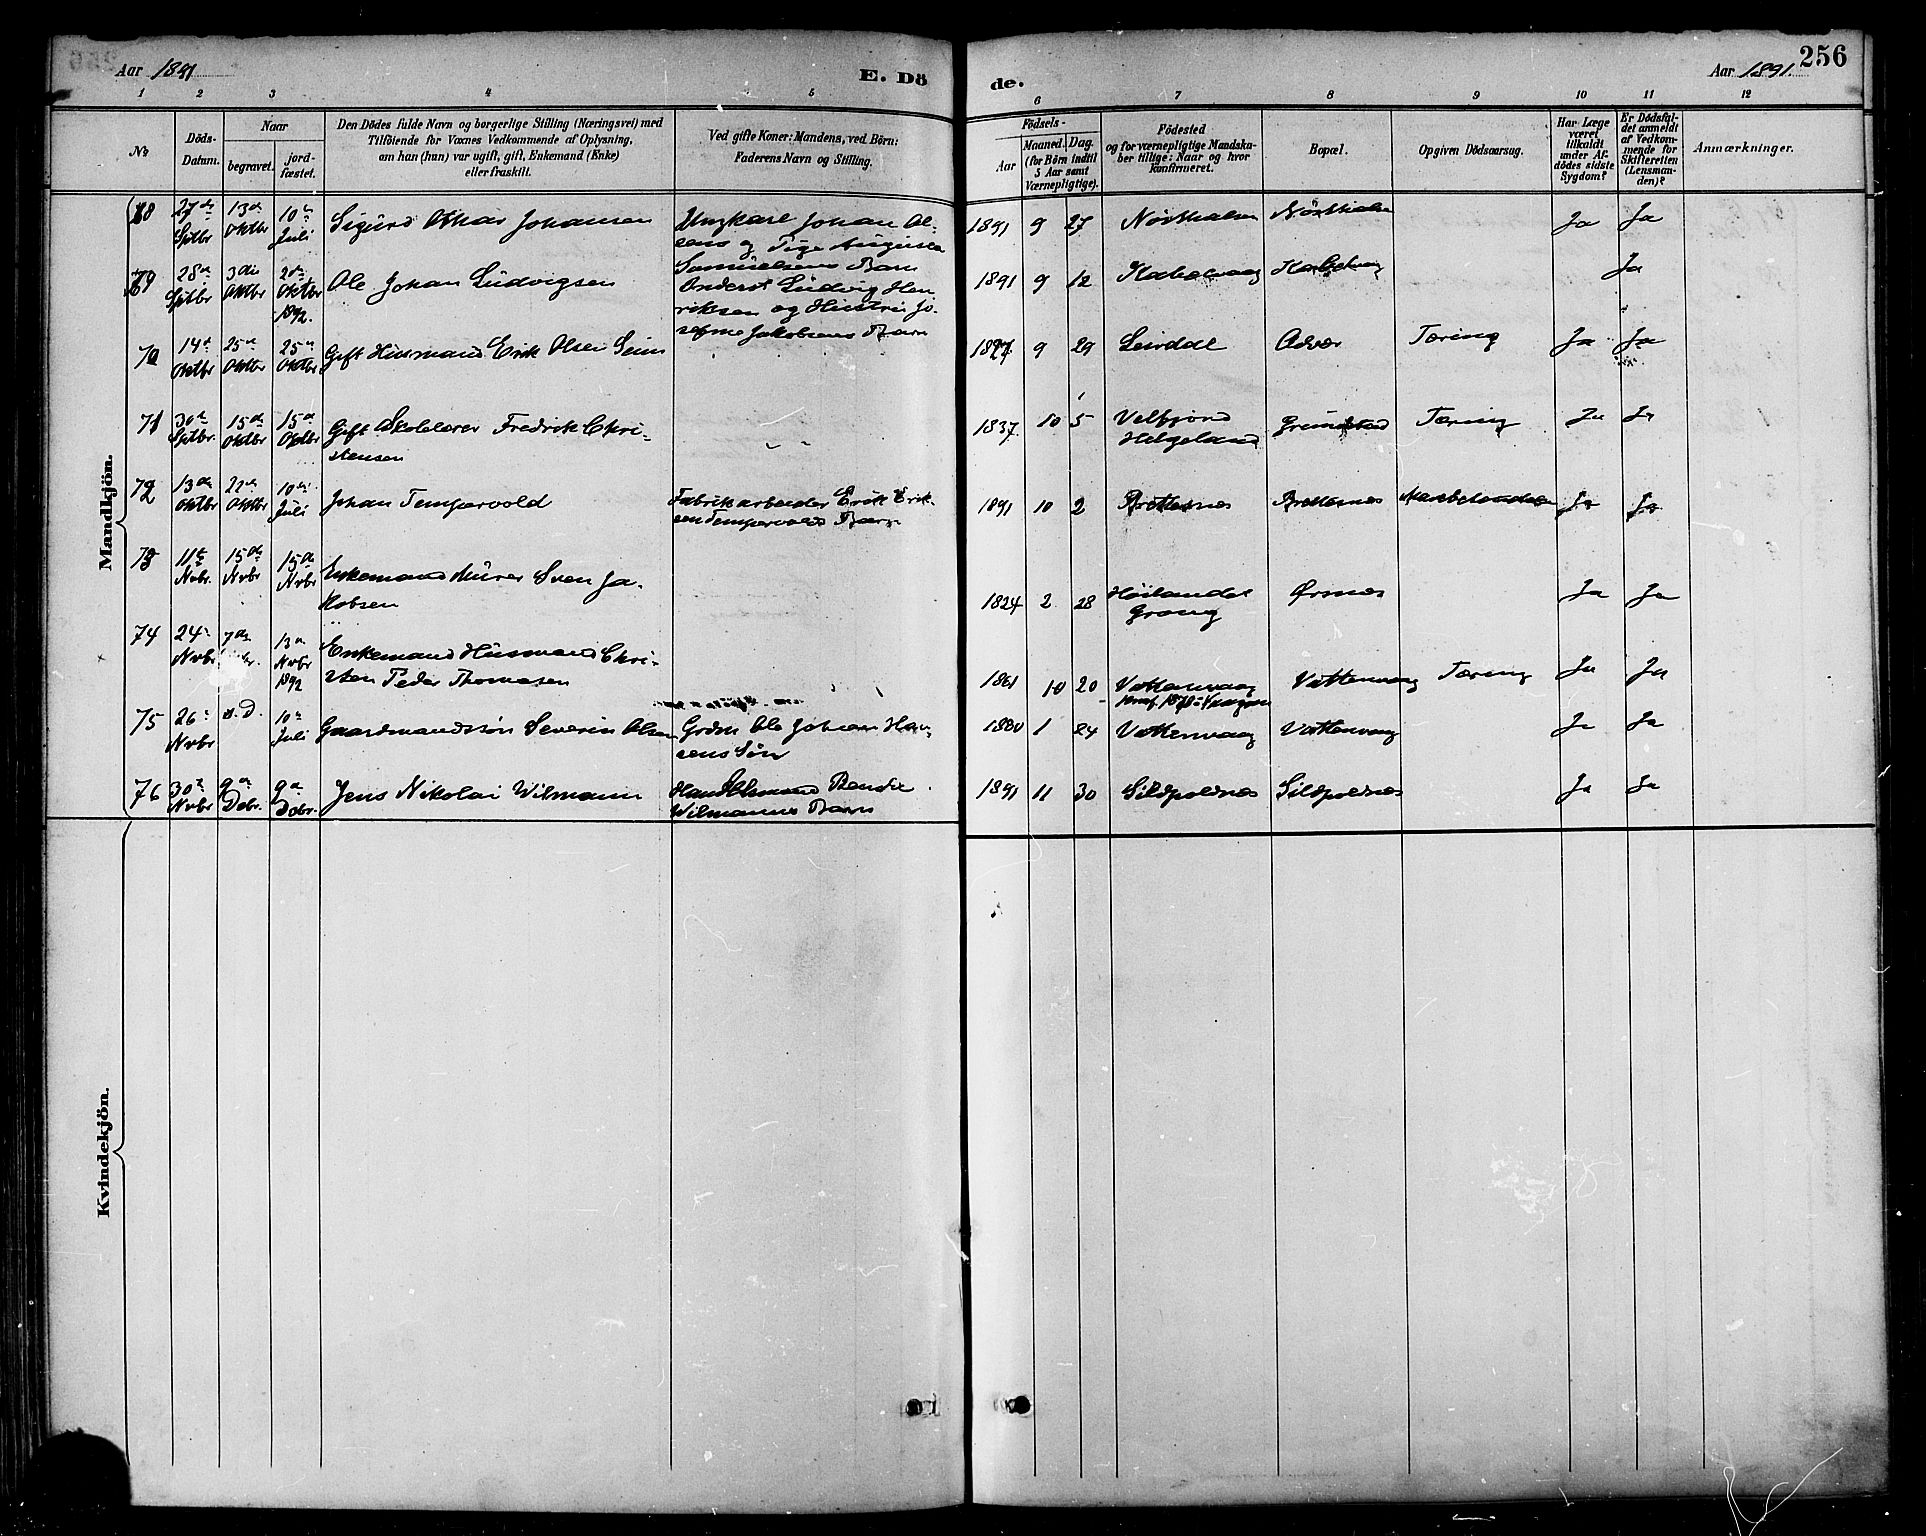 Aar 1891
E. Dö
de.
Aar 1891.
256
1 2 3 4 5 6 7 8 9 10 11 12
No
Döds-
Datum.
Naar
begravet.
jord-
fæstet.
Den Dödes fulde Navn og borgerlige Stilling (Næringsvei) med
Tilföiende for Voxnes Vedkommende af Oplysning,
om han (hun) var ugift, gift, Enkemand (Enke)
eller fraskilt.
Ved gifte Koner: Mandens, ved Börn:
Faderens Navn og Stilling.
Födsels-
Aar
Maaned. Dag.
(for Börn indtil
5 Aar samt
Værnepligtige).
Födested
og for værnepligtige Mandska-
ber tillige: Naar og hvor
konfirmeret.
Bopæl.
Opgiven Dödsaarsag.
Har Læge
været
tilkaldt
under Af-
dödes sidste
Sygdom?
Er Dödsfal-
det anmeldt
af Vedkom-
mende for
Skifteretten
(Lensman-
den)?
Anmærkninger.
Mandkjön.
68 27de Sptbr 13de Oktbr 10de Juli Sigurd Othar Johansen Ungkarl Johan Ol-
sens og Pige Augusta
Samuelsens Barn
1891 9 27 Nösthalsen Nösthalsen Ja Ja
69 28de Sptbr 3die Oktbr 2den Oktbr 1892. Ole Johan Ludvigsen Anders Ludvig Hen-
riksen og Hustru Jo-
sefine Jakobsens Barn
1891 9 12 Kabelvaag Kabelvaag Ja
70 14de Oktbr 25de Oktbr 25de Oktbr Gift Husmand Erik Olsen Seim
1827 9 29 Leirdal Advær Tæring Ja Ja
71 30te Sptbr. 15de Oktbr 15de Oktbr Gift Skolelærer Fredrik Chri-
stensen
1837 10 5 Velfjord
Helgeland Grundstad Tæring Ja Ja
72 13de Oktbr 22de Oktbr 10de Juli Johan Tempervold Fabrikarbeider Erik Erik-
sen Tempervolds Barn
1891 10 2 Brettesnes Brettesnes Ja Ja
73 11te Nvbr. 15de Nvbr 15de Nvbr Enkemand Murer Sven Ja-
kobsen
1824 2 28 Höilandet
Grong Ørsnes Ja Ja
74 24de Nvbr 7de 13de Nvbr 1892 Enkemand Husmand Chri-
sten Peder Thomasen
1861 10 20 Vattervaag Vattervaag Tæring Ja Ja
75 26de Nvbr s. D. 10de Juli Gaardmandssön Severin Olsen Grdm Ole Johan Han-
sens Sön
1880 1 24 Vattervaag Vattervaag Ja Ja
76 30te Nvbr 9de Dcbr. 9de Dcbr. Jens Nikolai Wilmann Handelsmand
Wilmanns Barn
1891 11 30 Sildpoldnes Sildpoldnes Ja Ja
Kvindekjön.